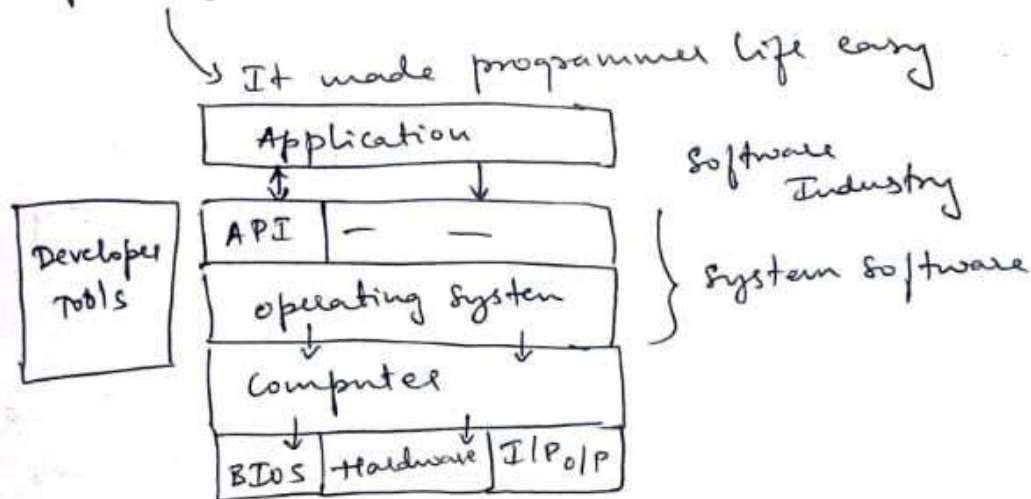 It made programmer life easy
Application
Software
Industry
API | — —
Developer
Tools
Operating System
System Software
Computer
BIOS | Hardware | I/P O/P